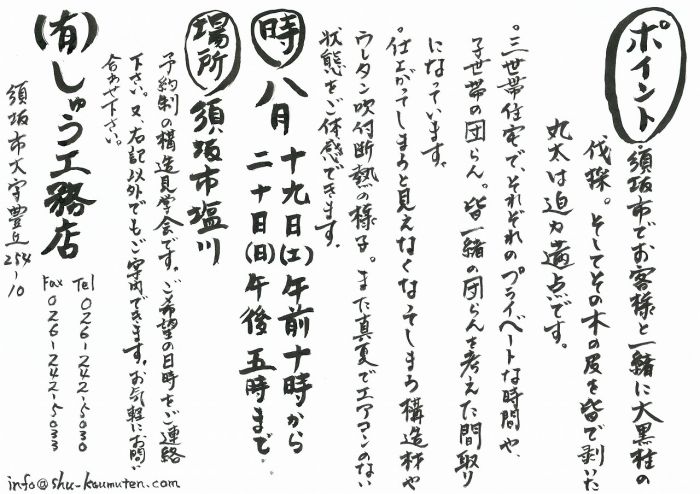 ポイント
・須坂市でお客様と一緒に大黒柱の
伐採。そしてその木の皮を皆で剥いた
丸太は迫力満点です。
・三世帯住宅で、それぞれのプライベートな時間や、
子世帯の団らん。皆一緒の団らんを考えた間取り
になっています。
・仕上がってしまうと見えなくなってしまう構造材や
ウレタン吹付断熱の様子。また真夏でエアコンのない
状態をご体感できます。
時 八月 十九日(土)午前十時から
二十日(日)午後五時まで
場所 須坂市塩川
予約制の構造見学会です。ご希望の日時をご連絡
下さい。又、右記以外でもご案内できます。お気軽にお問い
合わせ下さい。
(有)しゅう工務店
須坂市大字豊丘254-10
Tel 026-242-5030
Fax 026-242-5033
info@shu-koumuten.com